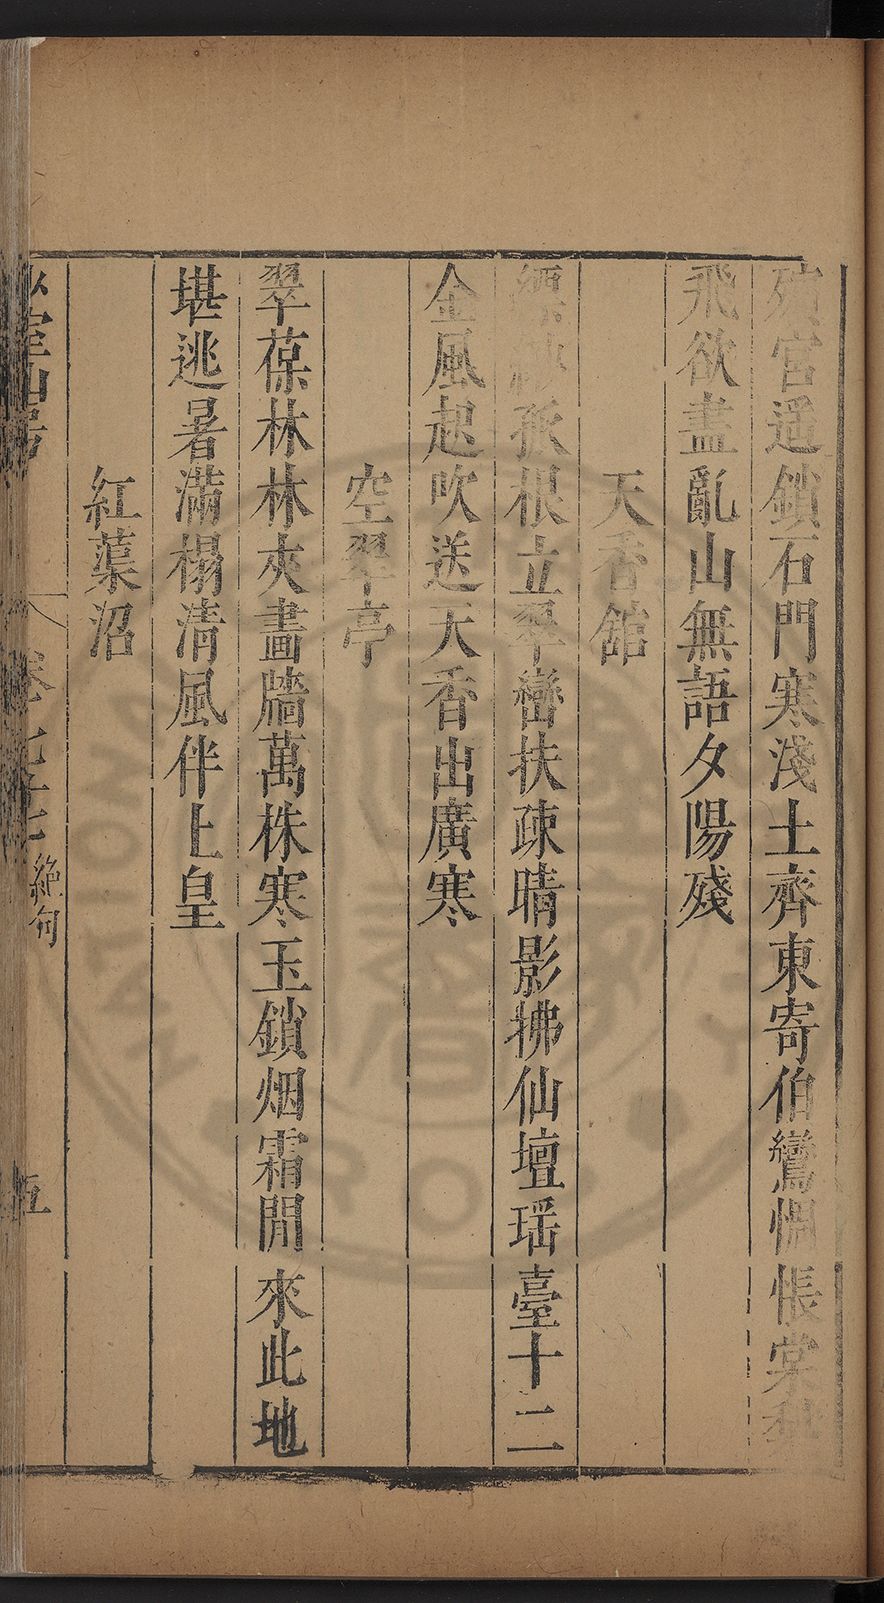 殯宮遥鎖石門寒淺土齊東寄伯鸞惆悵棠梨
飛欲盡亂山無語夕陽殘
天香館
縹緲孤根立翠巒扶疎晴影拂仙壇瑶臺十二
金風起吹送天香出廣寒
空翠亭
翠葆林林夾畵牆萬株寒玉鎖烟霜閒來此地
堪逃暑滿榻清風伴上皇
紅蕖沼
少室山房 卷之七十七 絶句 五